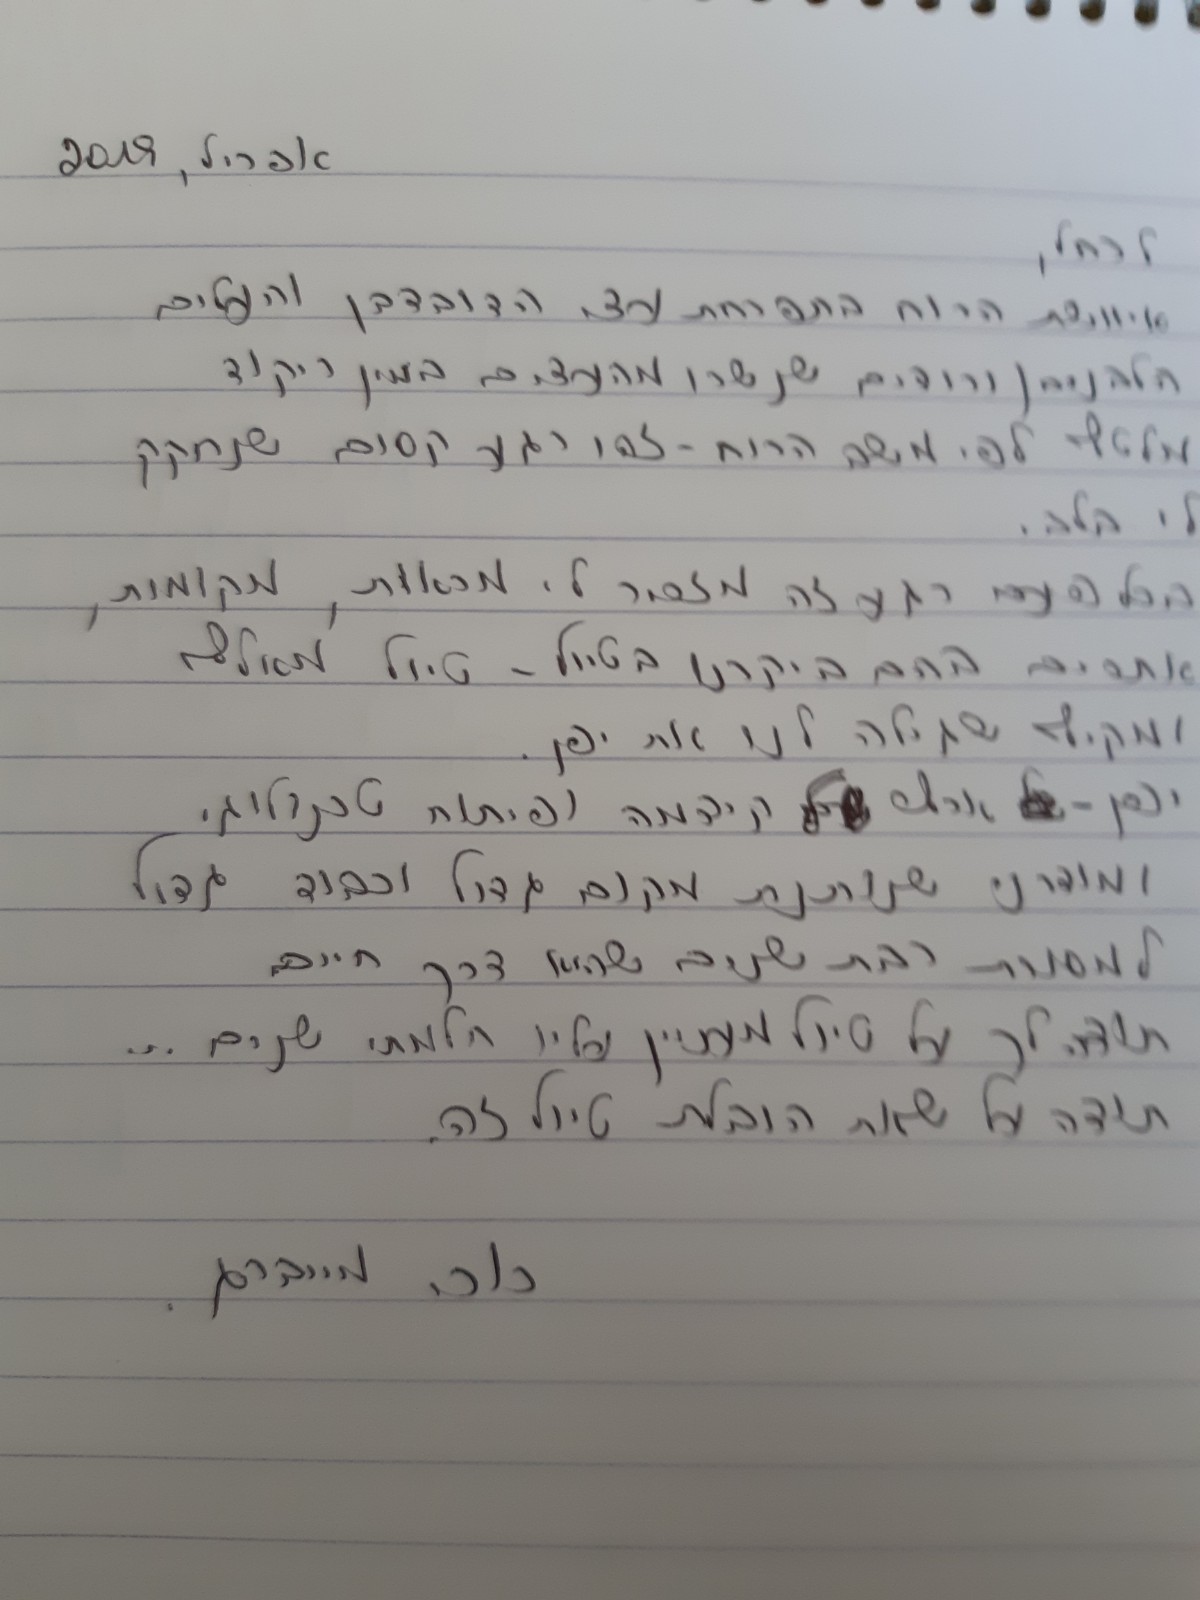 אפריל, 2019
לרחל,
איוושת הרוח בתפרחת עצי הדובדבן והעלים
הלבנים ורודים שנשרו מהעצים במין ריקוד
מלטף לפי משב הרוח - זהו רגע קסום שנחקק
לי בלב.
בכל פעם רגע זה מזכיר לי מראות, מקומות,
אתרים בהם ביקרנו בטיול - טיול מאלף
ומקיף שגילה לנו את יפן.
יפן - ארץ קידמה ופיתוח טכנולוגי
ומודרני שנותנת מקום גדול וכבוד גדול
למסורת רבת שנים שהיא דרך חיים
תודה לך על טיול מעניין עליו חלמתי שנים ...
תודה על שאת הובלת טיול זה.
מיברג.